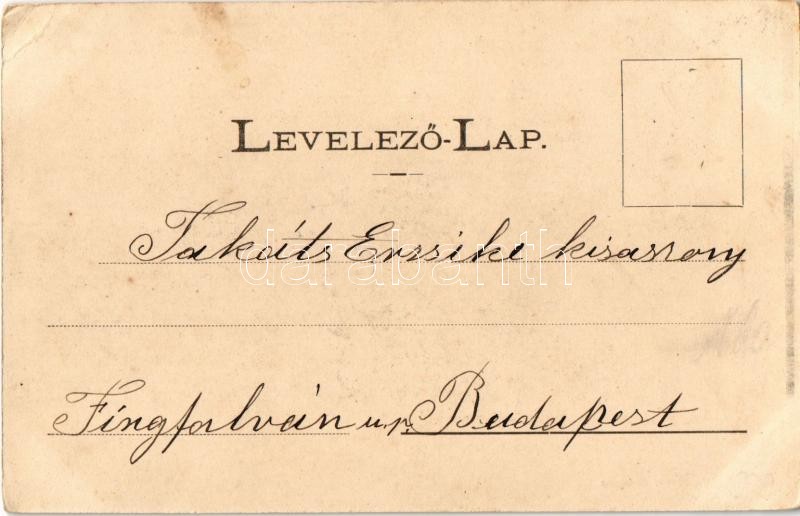 LEVELEZŐ-LAP.
Takáts Erzsike kisasszony
darabanth
Fingfalván u.p. Budapest